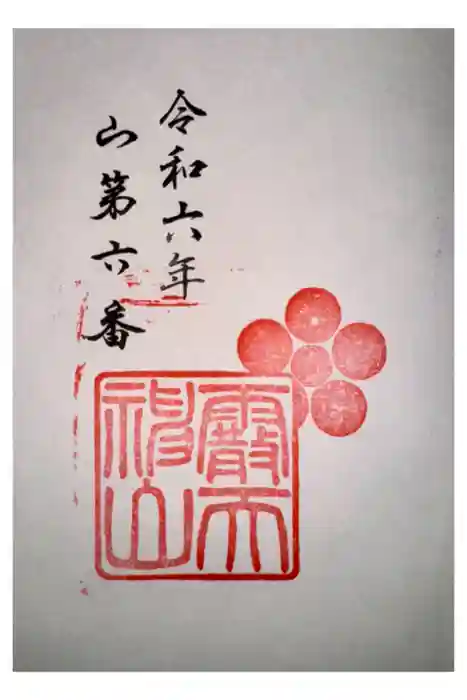 令和六年
山第六番
霰天
神山